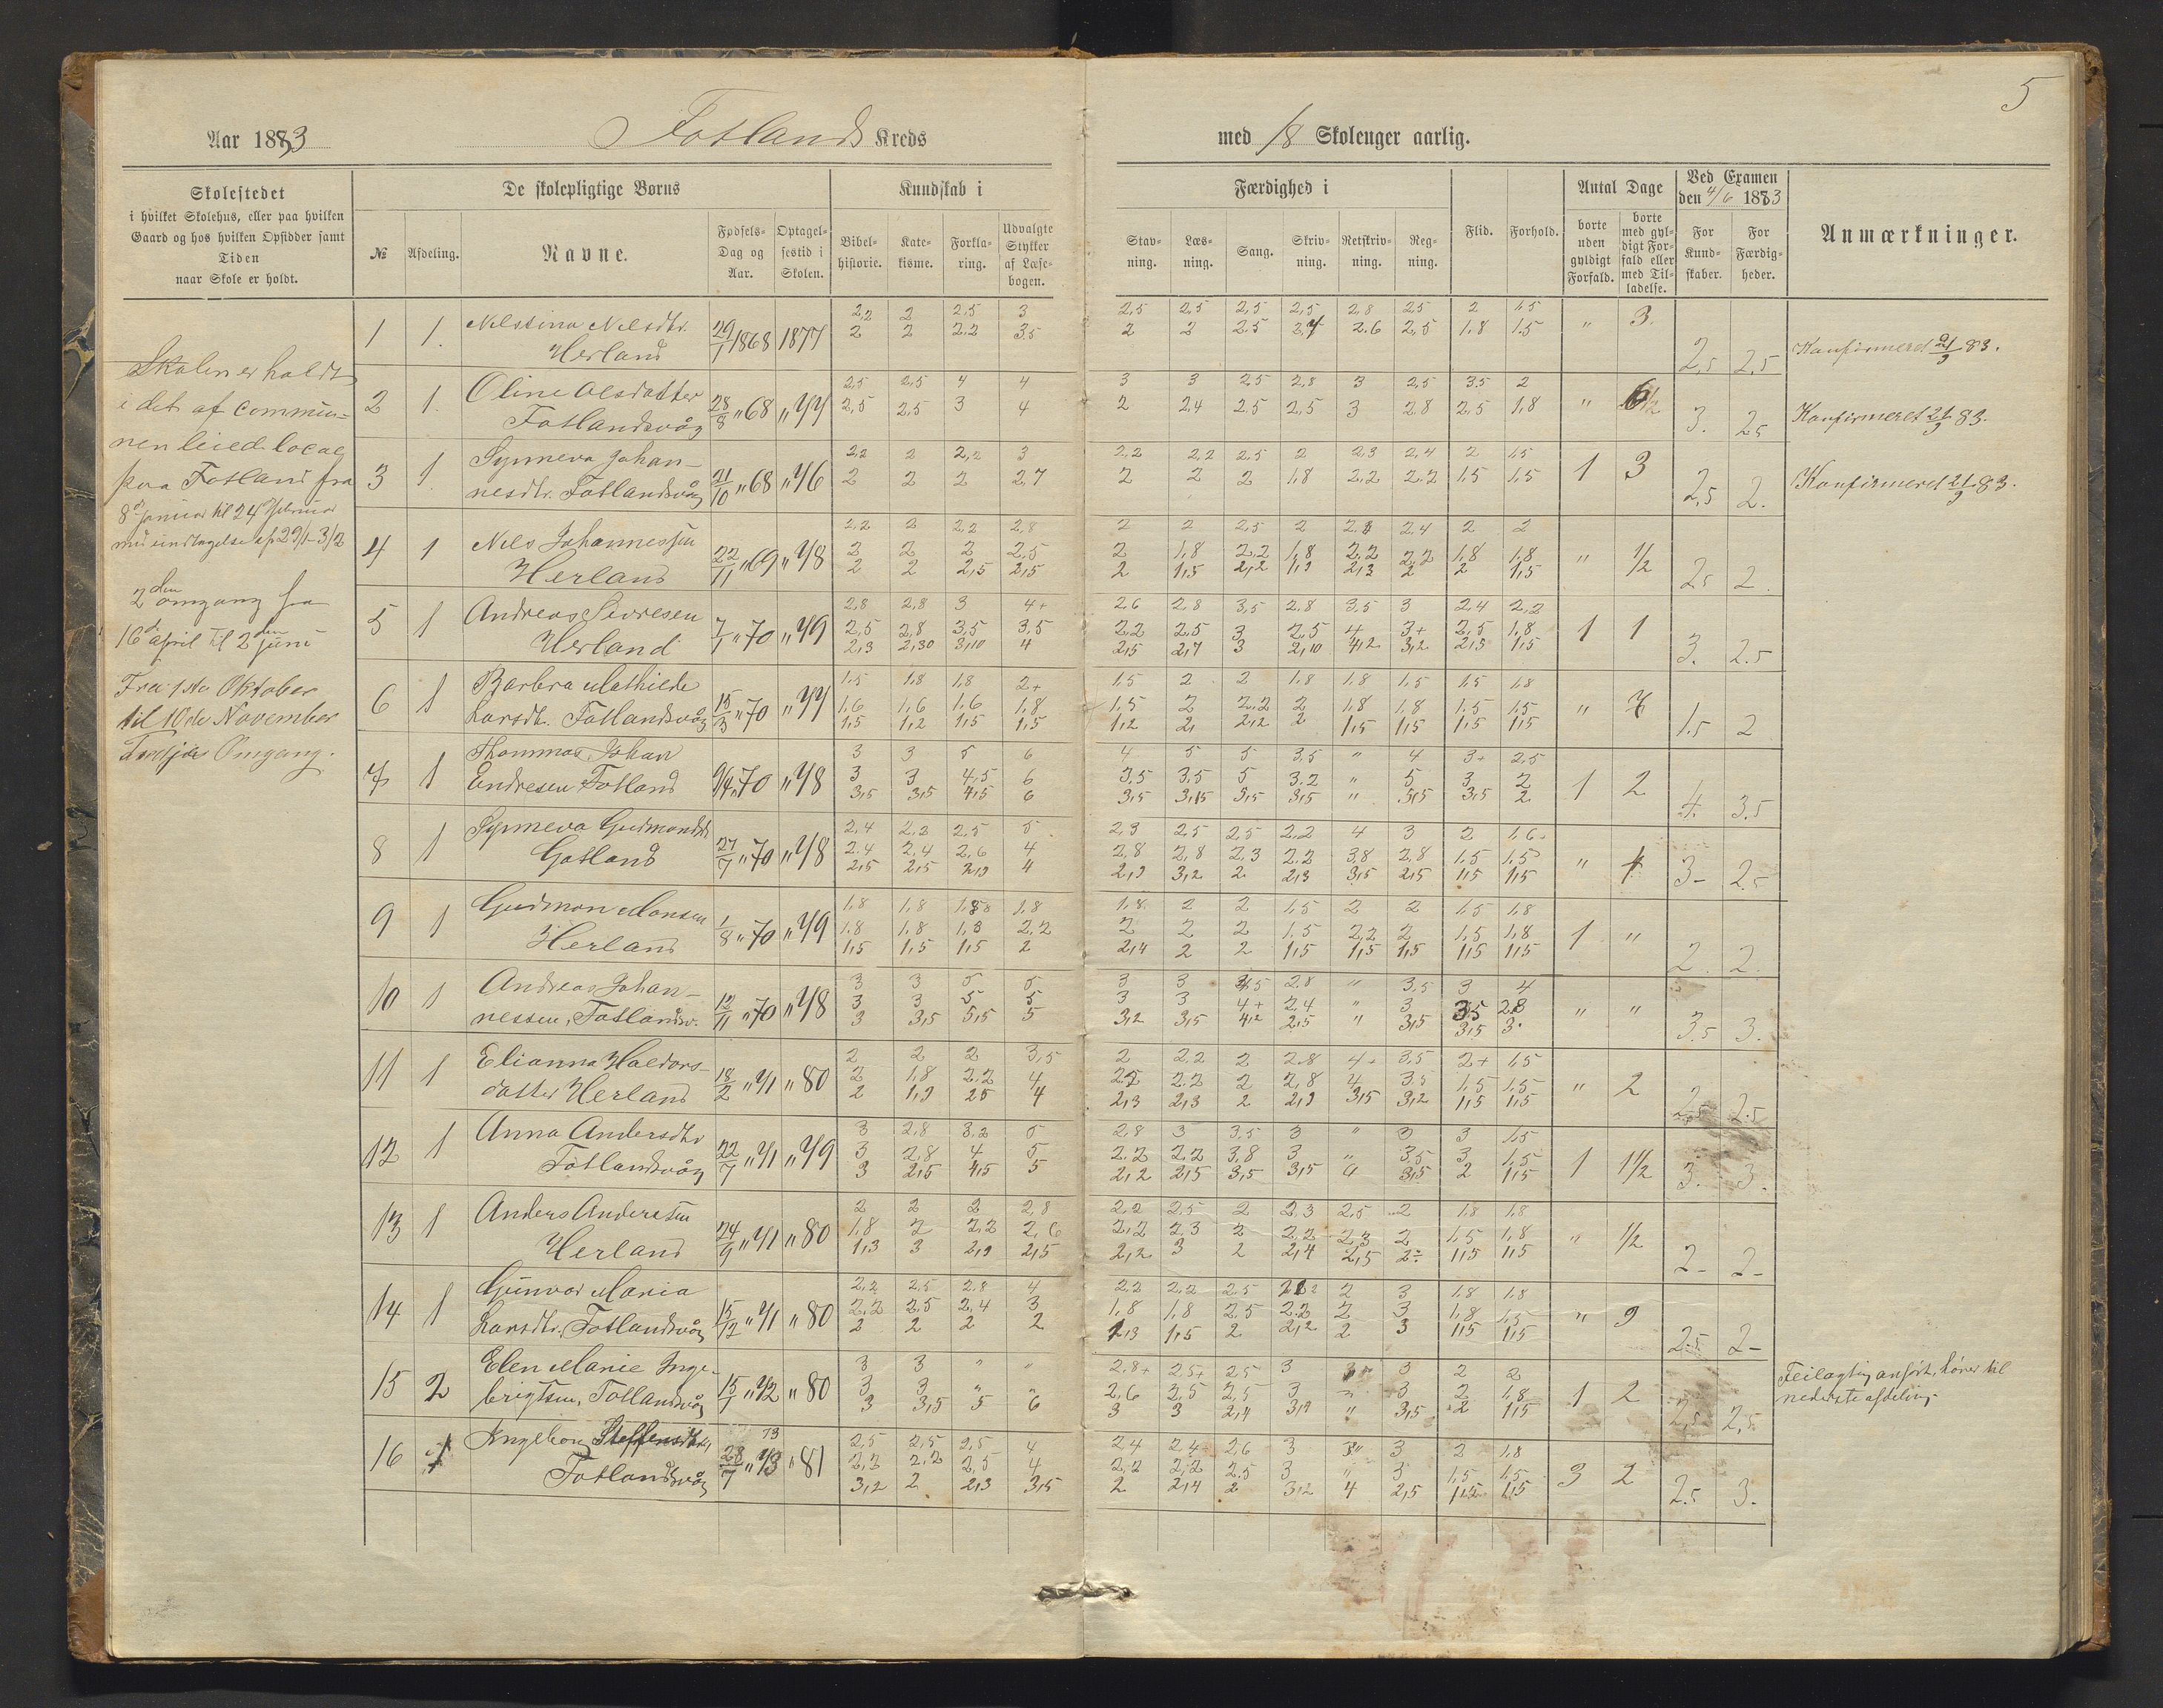 5
Aar 1883 Fotlands Kreds med 18 Skoleuger aarlig.
Skolestedet
i hvilket Skolehus, eller paa hvilken
Gaard og hos hvilken Opsidder samt
Tiden
naar Skole er holdt.
De skolepligtige Børns
№ Afdeling. Navne. Fødsels-Dag og Aar. Optagelsestid i Skolen.
Kundskab i
Bibelhistorie. Katekisme. Forklaring. Udvalgte Stykker af Læsebogen.
Færdighed i
Stavning. Læsning. Sang. Skrivning. Retskrivning. Regning.
Flid. Forhold.
Antal Dage
borte uden gyldigt Forfald. borte med gyldigt Forfald eller med Tilladelse.
Ved Examen
den 4/6 1883
For Kundskaber. For Færdigheder.
Anmærkninger.
Skolen er holdt
i det af commü-
nen leied local
paa Fotland fra
8de januar til 24de februar
med undtagelse af 29/1-3/2
2den omgang fra
16de april til 2den juni
Fra 1ste Oktober
til 10de November
Tredje Omgang.
1 1. Nilsina Nilsdtr. Herland 29/1 1868 1877
2,2 2 2,5 3 2,5 2,5 2,5 2,5 2,8 2,5 2 1,5
2 2 2,2 3,5 2 2 2,5 2,4 2,6 2,5 1,8 1,5 " 3 2,5 2,5 Konfirmeret 21/9 83.
2 1. Oline Olsdatter Fotlandsvåg 28/8 " 68 " 77
2,5 2,5 4 4 3 3 2,5 2,8 3 2,5 3,5 2
2,5 2,5 3 4 2 2,4 2,5 2,5 3 2,8 2,5 1,8 " 6½ 3. 2,5 Konfirmeret 21/9 83.
3 1. Synneva Johan-
nesdtr. Fotlandsvåg 21/10 " 68 " 76
2,2 2 2,2 3 2,2 2,2 2,5 2 2,3 2,4 2 1,5
2 2 2 2,7 2 2 2 1,8 2,2 2,2 1,5 1,5 1 3 2,5 2. Konfirmeret 21/9 83.
4 1 Nils Johannessen Herland 22/11 " 69 " 78
2,2 2 2,2 2,8 2 2 2,5 2 2,8 2,4 2 2
2 2 2 2,5 2 1,8 2,2 1,8 2,2 2,2 1,8 1,8 " 1/2
2 2 2,5 2,5 2 1,5 2,2 1,9 2,3 2 2 1,5 2,5 2.
5 1 Andreas Sivresen Herland 7/1 " 70 " 79
2,8 2,8 3 4+ 2,6 2,8 3,5 2,8 3,5 3 2,4 2,2
2,5 2,8 3,5 3,5 2,2 2,5 3 2,5 4 3+ 2,5 1,8 1 1
2,3 2,30 3,10 4 2,5 2,7 3 2,10 4,2 3,2 2,5 1,5 3. 2.5
6 1 Barbra Mathilde
Larsdtr. Fotlandsvåg 15/3 " 70 " 77
1,5 1,8 1,8 2+ 1,5 2 2 1,8 1,8 1,5 1,5 1,8
1,6 1,6 1,6 1,8 1,5 2 2,2 2 1,8 1,8 1,5 1,5 " 7
1,5 1,2 1,5 1,5 1,2 2, 2,2 2 1,5 1,5 1,5 1,5 1,5 2
7 1 Thommas Johan
Endresen Fotland 9/4 " 70 " 78
3 3 5 6 4 5 5 3,5 " 4 3+ 2,5
3 3 4,5 6 3,5 3,5 5 3,2 " 5 3 2 1 2
3,5 3,5 4,5 6 3,5 3,5 5,5 3,5 " 5,5 3,5 2 4. 3.5
8 1 Synneva Gudmondsd.
Gotland 27/7 " 70 " 78
2,4 2,2 2,5 5 2,3 2,5 2,5 2,2 4 3 2 1,6
2,4 2,4 2,6 4 2,8 2,8 2,3 2,2 3,8 2,8 1,5 1,5 "
2,5 2,5 2,9 4 2,9 3,2 2 2,3 3,5 2,5 1,5 1,5 3- 2.5
9 1 Gudmon Monsen Herland 1/8 " 70 " 79
1,8 1,8 1,8 1,8 1,8 2 2 1,5 2 2 1,5 1,8
1,8 1,8 1,8 2,2 2 2 2 1,5 2,2 2 1,5 1,8 1 "
1,5 1,5 1,5 2 2,4 2 2 1,5 1,5 1,5 1,5 1,5 2. 2.
10 1 Andreas Johan-
nessen, Fotlandsv. 12/11 " 70 " 78
3 3 5 5 3 3 4,5 2,8 " 3,5 3 4
3 3 5 5 3 3 4+ 2,4 " 3 3,5 2,8 " "
3 3,5 5,5 5 3,2 3,5 4,2 2,5 " 3,5 3,5 3. 3.5 3.
11 1 Elianna Haldors-
datter Herland 18/2 " 71 " 80
2 2 2 3,5 2 2,2 2 2,8 4+ 3,5 2+ 1,5
2 1,8 2,2 4 2,2 2,2 2 2,8 4 3,5 1,5 1,5 " 2
2 1,9 2,5 4 2,3 2,3 2 2,9 3,5 3,2 1,5 1,5 2,5 2,5
12 1 Anna Andersdtr
Fotlandsvåg 22/7 " 71 " 79
3 2,8 3,2 5 2,8 3 3,5 3 " 3 3 1,5
3 2,8 4 5 2,2 2,2 3,8 3 " 3,5 3 1,5 1 1½
3 2,5 4,5 5 2,2 2,5 3,5 3,5 3,5 2 1,5 3. 3.
13 1 Anders Andersen
Herland 24/9 " 71 " 80
2 2 2 2,8 2,2 2,5 2 2,3 2,5 2 1,8 1,8
1,8 2 2,2 2,6 2,2 2,3 2 2,2 2,3 2 1,5 1,8 " 1/2
1,3 3 2,9 2,5 2,2 3 2 2,4 2,5 2 1,5 1,5 2- 2-
14 1 Gunvor Maria
Larsdtr. Fotlandsvåg 15/12 " 71 " 80
2,2 2,5 2,8 4 2,2 2,2 2,5 2 3 1,8 1,8
2,2 2,5 2,4 3 1,8 1,8 2,5 2,2 2 3 1,8 1,5 " 9
2 2 2 2 2,3 1,5 2 2,2 2 3 1,5 1,5 2,5 2-
15 2 Elen Marie Inge-
brigtsen, Fotlandsvåg 15/1 " 72 " 80
3 3 " " 2,8+ 2,5+ 2,5 3 3 2 2
3 3 " " 2,6 2,5 2,5 3 " 3 2 1,8 1 2
3 3,5 5 6 3 3 2,4 3,9 " 3,5 2 1,5 2,5 2,5
Feilagtig anført, hører til
nederste afdeling
16 Ingebor Steffensdtr.
Fotlandsvåg 28/7 " 73 " 81
2,5 2,5 2,5 4 2,4 2,4 2,6 3 3 2 1,8
2,2 2,2 2,5 4 2,2 2,2 2,5 3 " 3 1,5 1,5 3 2
3,2 2 2,3 3,5 2 2,4 2 3,2 4 2,5 1,5 1,5 2,5 3.